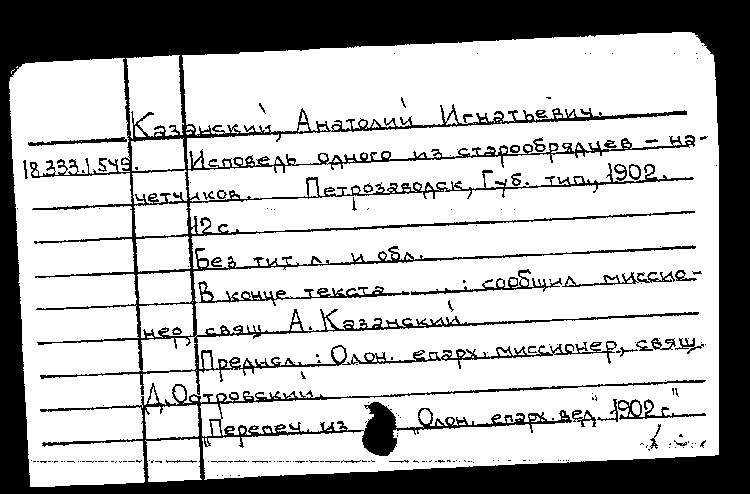 Казанский, Анатолий Игнатьевич.
18.333.1.549. Исповедь одного из старообрядцев - на-
четчиков. Петрозаводск, Губ. тип., 1902.
12 с.
Без тит. л. и обл.
В конце текста .....: сообщил миссио-
нер, свящ. А. Казанский.
Предисл.: Олон. епарх. миссионер, свящ.
Д. Островский.
Перепеч. из „Олон. епарх. вед." 1902 г."